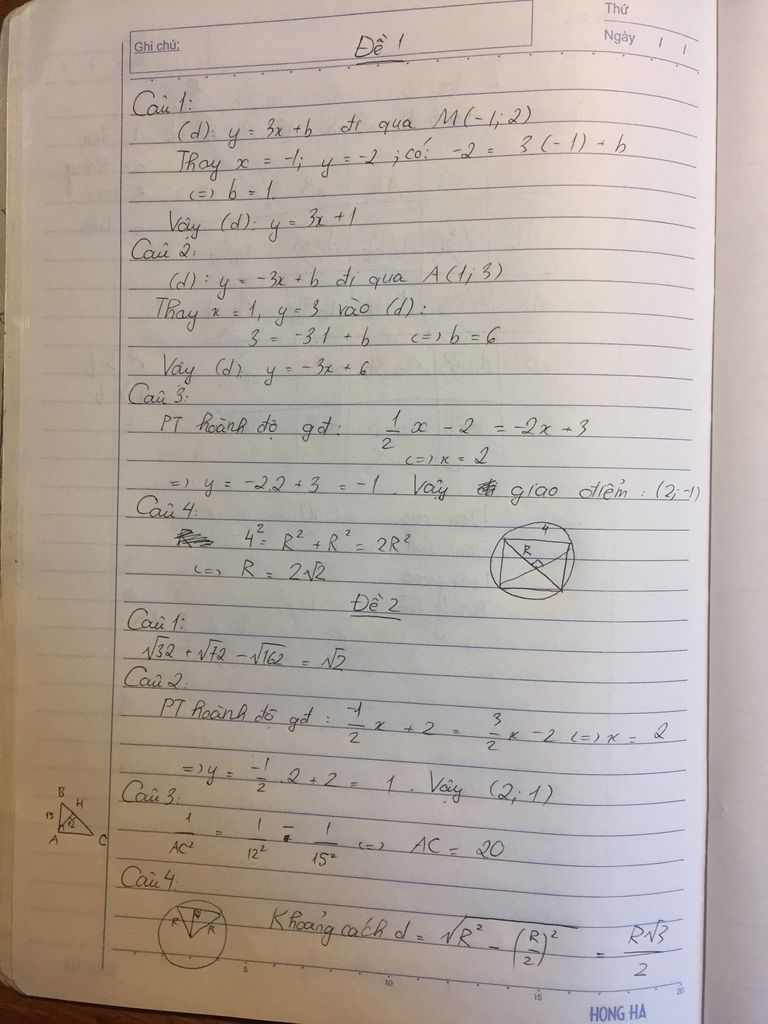 Thứ
Ghi chú: Đề 1 Ngày 1 1
Câu 1:
(d): y = 3x + b đi qua M(-1; 2)
Thay x = -1; y = -2 ; có: -2 = 3(-1) + b
<=> b = 1.
Vậy (d): y = 3x + 1
Câu 2:
(d): y = -3x + b đi qua A(1; 3)
Thay x = 1, y = 3 vào (d):
3 = -3.1 + b <=> b = 6
Vậy (d) y = -3x + 6
Câu 3:
PT hoành độ gđ: 1/2 x - 2 = -2x + 3
<=> x = 2
=> y = -2.2 + 3 = -1. Vậy giao điểm: (2; -1)
Câu 4:
4² = R² + R² = 2R²
<=> R = 2√2
4
R
Đề 2
Câu 1:
√32 + √72 - √162 = √2
Câu 2:
PT hoành độ gđ: -1/2 x + 2 = 3/2 x - 2 <=> x = 2
=> y = -1/2 . 2 + 2 = 1. Vậy (2; 1)
Câu 3:
B
H
15
12
A C
1/AC² = 1/12² - 1/15² <=> AC = 20
Câu 4:
R R R
Khoảng cách d = √(R² - (R/2)²) = R√3/2
5 10 15 20
HONG HA